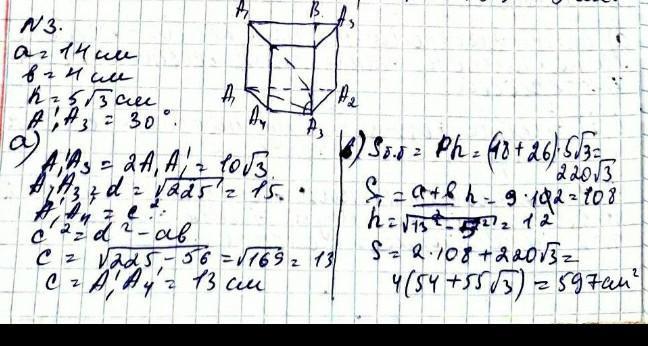 N3.
a = 14 см
b = 4 см
h = 5√3 см
A₁'A₃ = 30°.
A₁ B₁ A₃
A₁ A₂
A₄ A₃
а)
A₁'A₃ = 2A₁A₁' = 10√3.
A₁A₃ = d = √225 = 15.
A₁'A₄' = c :
c² = d² - ab
c = √225 - 56 = √169 = 13
c = A₁'A₄' = 13 см
б) Sб.б = Ph = (18 + 26)·5√3 =
220√3
S = a+b h = 9·12 = 108
h = √13² - 5² = 12
S = 2·108 + 220√3 =
4(54 + 55√3) = 597 см²